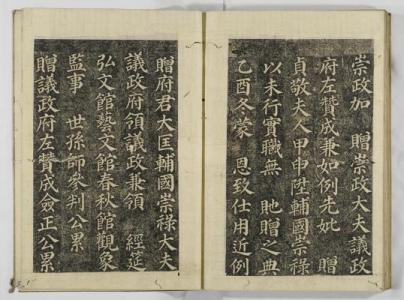 崇政加　贈崇政大夫議政
府左贊成兼如例先妣　贈
貞敬夫人甲申陞輔國崇祿
以未行實職無　貤贈之典
乙酉冬蒙　恩致仕用近例
贈府君大匡輔國崇祿大夫
議政府領議政兼領　經筵
弘文館藝文館春秋館觀象
監事　世孫師參判公累
贈議政府左贊成僉正公累